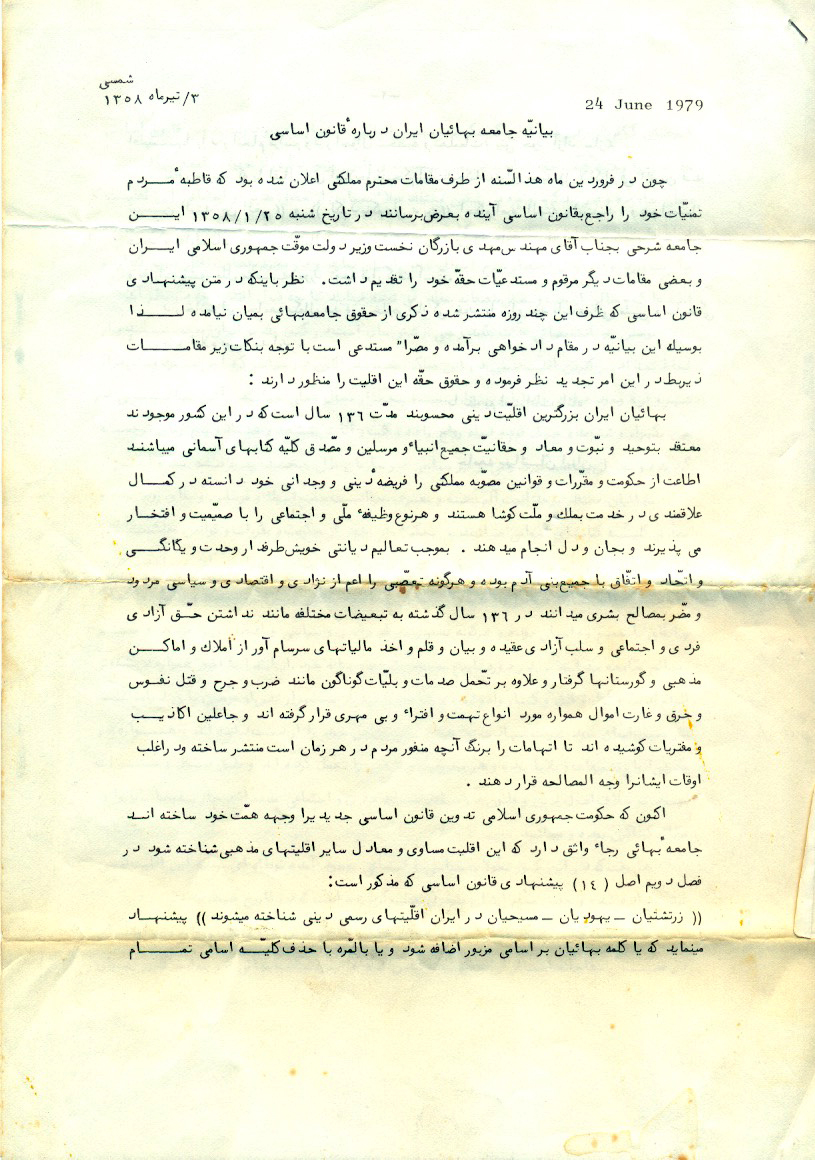 شمسی
۳/ تیرماه ۱۳۵۸
24 June 1979
بیانیّه جامعه بهائیان ایران درباره ٔ قانون اساسی
چون در فروردین ماه هذالسّنه از طرف مقامات محترم مملکتی اعلان شده بود که قاطبه ٔ مردم
تمنیّات خود را راجع بقانون اساسی آینده بعرض برسانند در تاریخ شنبه ۱۳۵۸/۱/۲۵ این
جامعه شرحی بجناب آقای مهندس مهدی بازرگان نخست وزیر دولت موقّت جمهوری اسلامی ایران
و بعضی مقامات دیگر مرقوم و مستدعیّات حقّه خود را تقدیم داشت. نظر باینکه در متن پیشنهادی
قانون اساسی که ظرف این چند روزه منتشر شده ذکری از حقوق جامعه بهائی بمیان نیامده لذا
بوسیله این بیانیّه در مقام داد خواهی برآمده و مصّرا" مستدعی است با توجه بنکات زیر مقامات
ذیربط در این امر تجدید نظر فرموده و حقوق حقّه این اقلیت را منظور دارند :
بهائیان ایران بزرگترین اقلیّت دینی محسوبند مدّت ۱۳۶ سال است که در این کشور موجودند
معتقد بتوحید و نبّوت و معاد و حقانیّت جمیع انبیاء و مرسلین و مصّدق کلیّه کتابهای آسمانی میباشند
اطاعت از حکومت و مقرّرات و قوانین مصوّبه مملکتی را فریضه ٔ دینی و وجدانی خود دانسته در کمال
علاقمندی در خدمت بملك و ملّت کوشا هستند و هرنوع وظیفه ٔ ملّی و اجتماعی را با صمیّمیت و افتخار
می پذیرند و بجان و دل انجام میدهند . بموجب تعالیم دیانتی خویش طرفدار وحدت و یگانگی
و اتّحاد و اتّفاق با جمیع بنی آدم بوده و هرگونه تعصّبی را اعم از نژادی و اقتصادی و سیاسی مردود
و مضّر بمصالح بشری میدانند در ۱۳۶ سال گذشته به تبعیضات مختلفه مانند نداشتن حّق آزادی
فردی و اجتماعی و سلب آزادی عقیده و بیان و قلم و اخذ مالیاتهای سرسام آور از املاك و اماکن
مذهبی و گورستانها گرفتار و علاوه بر تحّمل صدمات و بلیّات گوناگون مانند ضرب و جرح و قتل نفوس
و حرق و غارت اموال همواره مورد انواع تهمت و افتراء و بی مهری قرار گرفته اند و جاعلین اکاذیب
و مفتریات کوشیده اند تا اتهامات را برنگ آنچه منفور مردم در هر زمان است منتشر ساخته و در اغلب
اوقات ایشانرا وجه المصالحه قرار دهند .
اکنون که حکومت جمهوری اسلامی تدوین قانون اساسی جدیدیرا وجهه همّت خود ساخته اند
جامعه ٔ بهائی رجاء واثق دارد که این اقلیت مساوی و معادل سایر اقلیتهای مذهبی شناخته شود در
فصل دویم اصل ( ۱۴ ) پیشنهادی قانون اساسی که مذکور است:
(( زرتشتیان ــ یهودیان ــ مسیحیان در ایران اقلّیتهای رسمی دینی شناخته میشوند )) پیشنهاد
مینماید که یا کلمه بهائیان بر اسامی مزبور اضافه شود و یا بالمّره با حذف کلیّه اسامی تمام